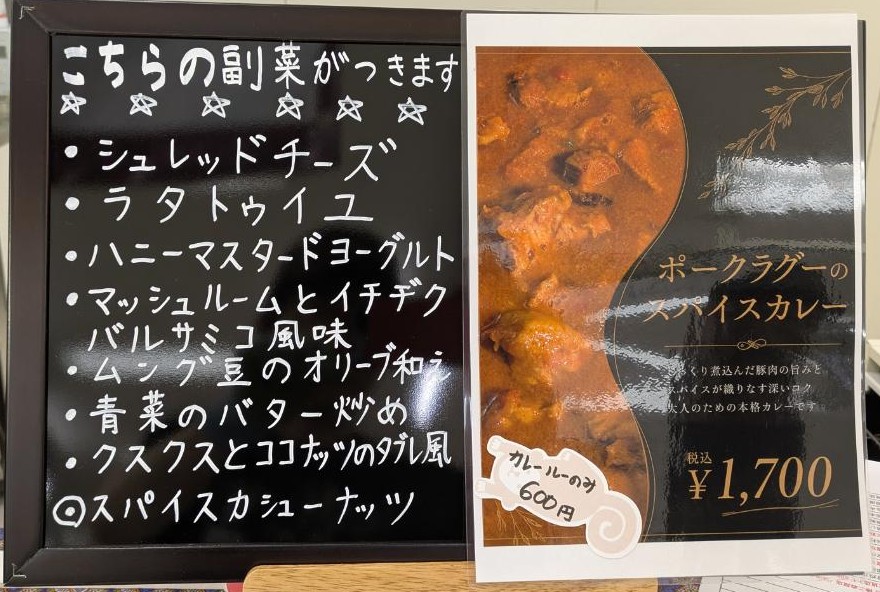 こちらの副菜がつきます
☆ ☆ ☆ ☆ ☆ ☆
・シュレッドチーズ
・ラタトゥイユ
・ハニーマスタードヨーグルト
・マッシュルームとイチヂク
バルサミコ風味
・ムング豆のオリーブ和え
・青菜のバター炒め
・クスクスとココナッツのタブレ風
◎スパイスカシューナッツ
ポークラグーの
スパイスカレー
っくり煮込んだ豚肉の旨みと
スパイスが織りなす深いコク
大人のための本格カレーです
税込
¥1,700
カレールーのみ
600円